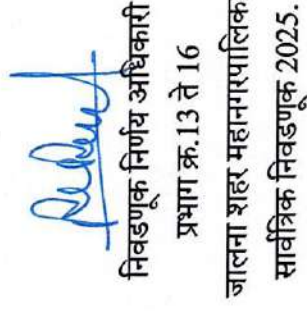 निवडणूक निर्णय अधिकारी
प्रभाग क्र.13 ते 16
जालना शहर महानगरपालिक
सार्वत्रिक निवडणूक 2025.